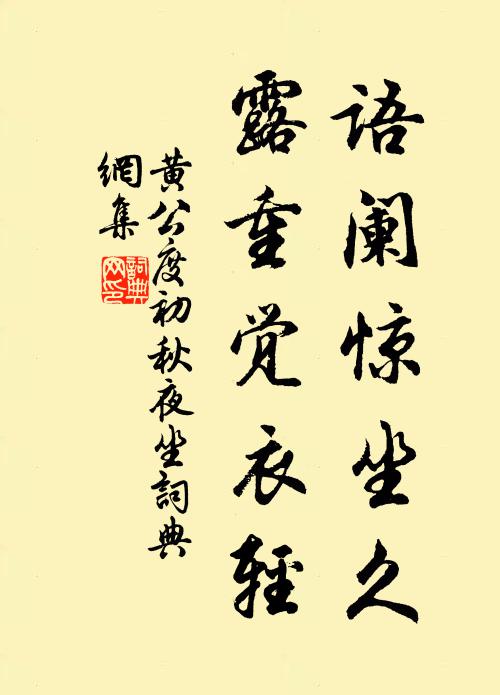 语阑惊坐久
露重觉衣轻
黄公度初秋夜坐詞典
網集
詞典
网印